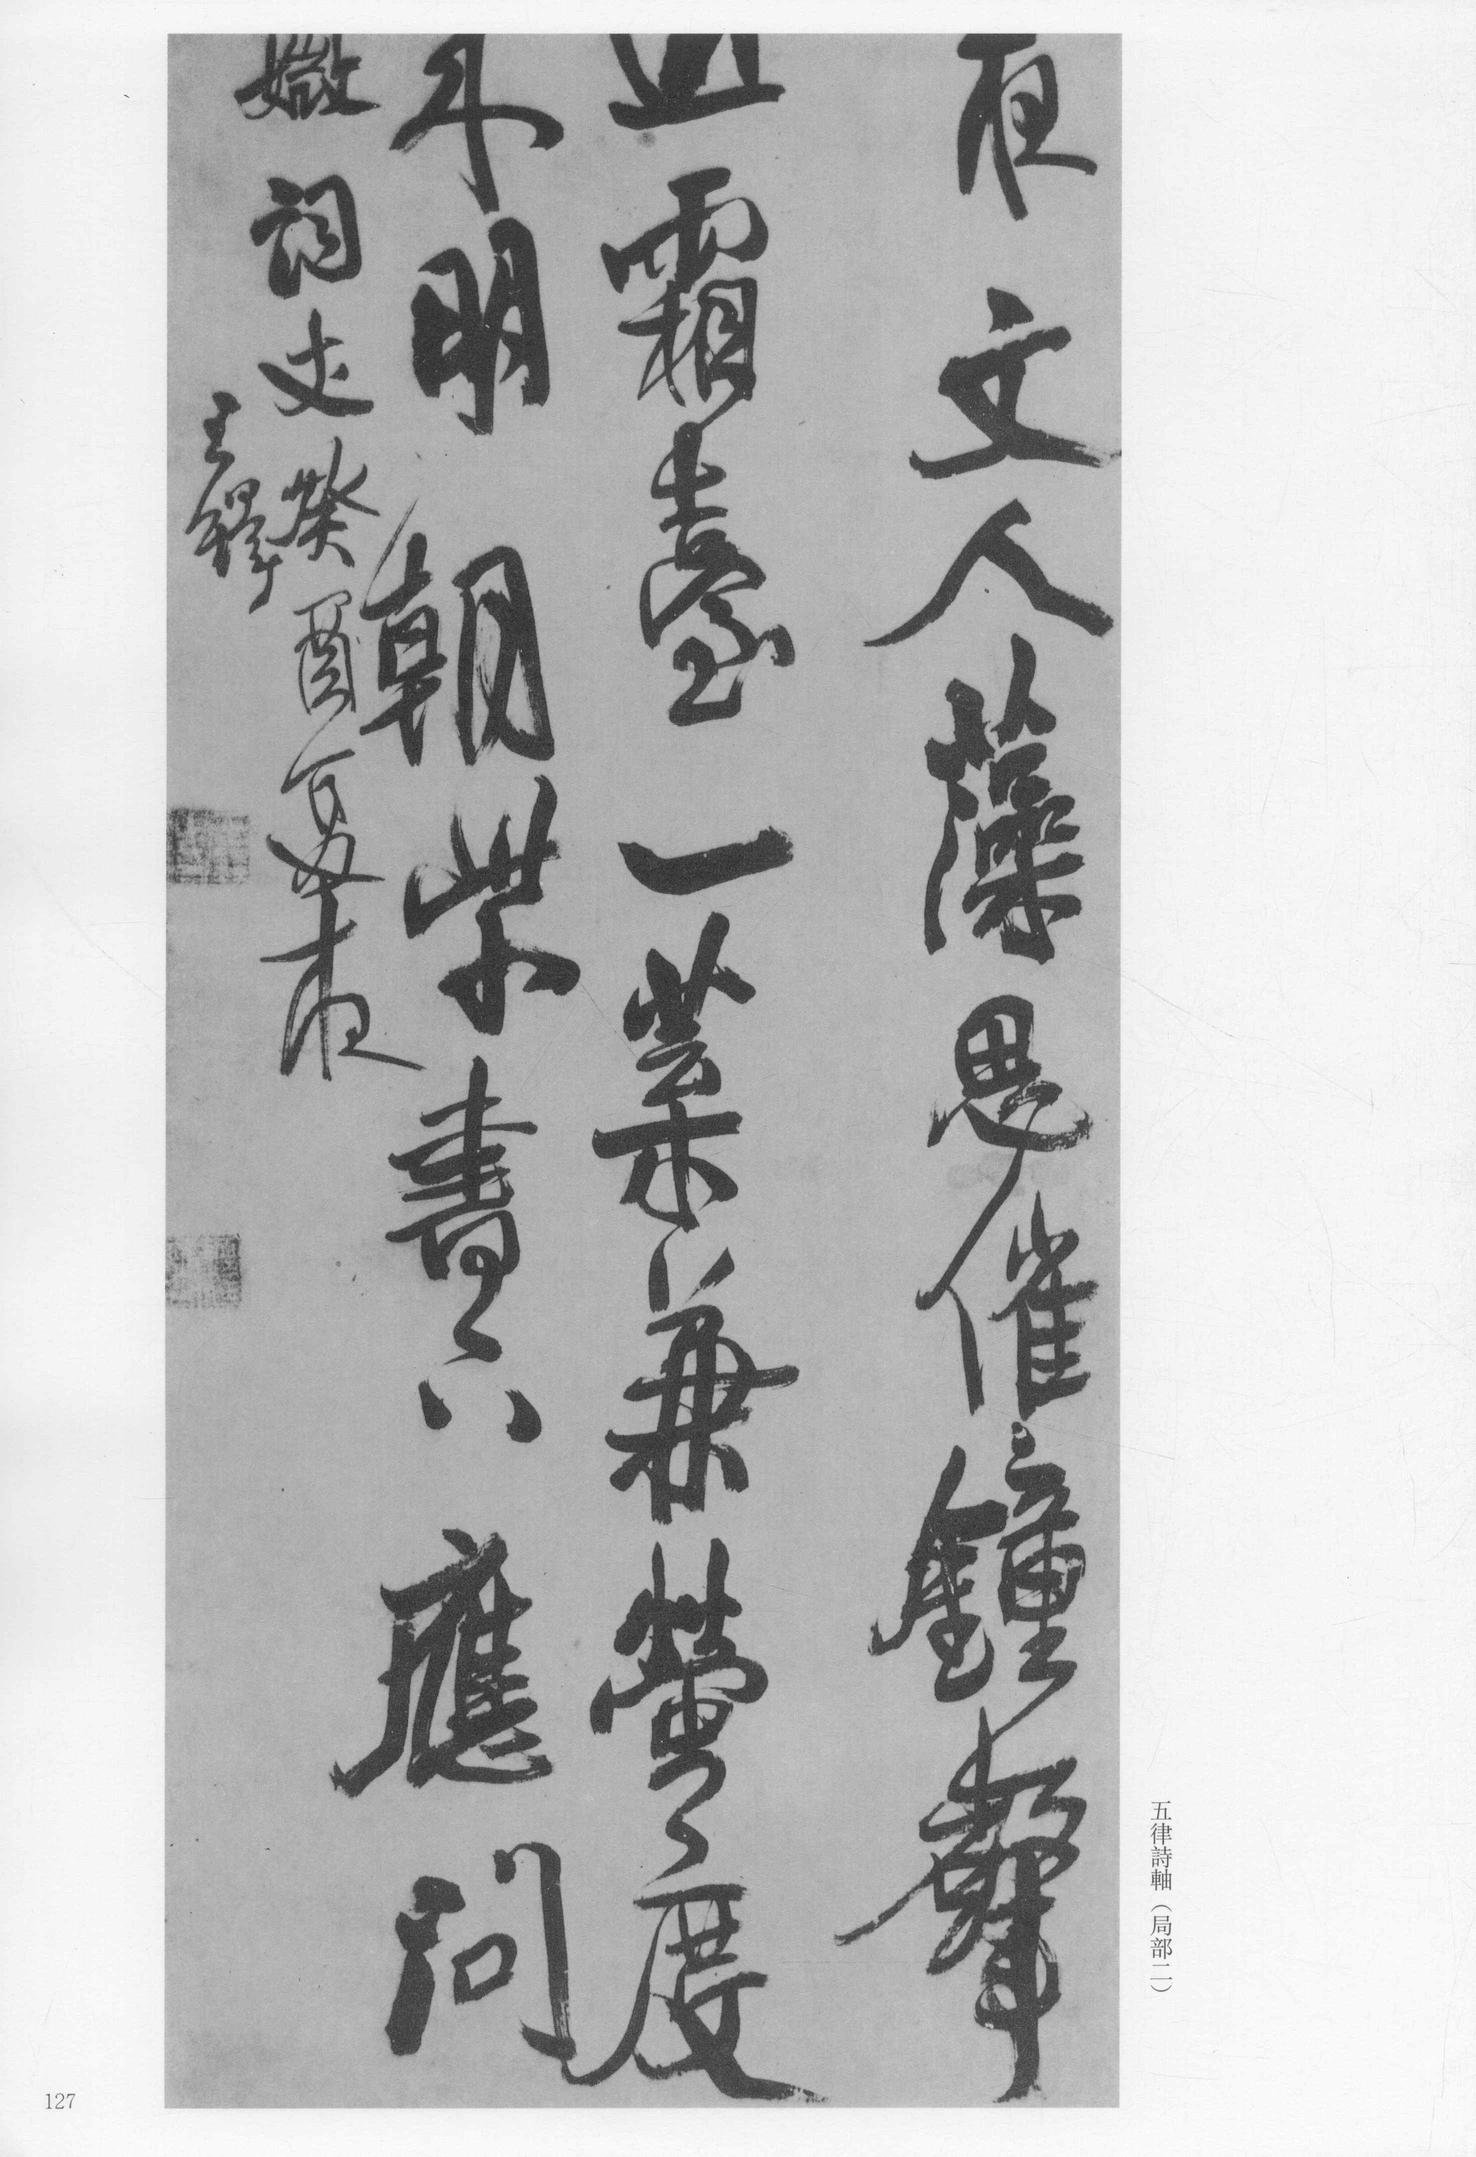 夜文人藻思催鐘聲
近霜臺一葉兼螢度
不明朝柴書、應問
詞丈癸酉夏夜
王鐸
五律詩軸（局部二）
127